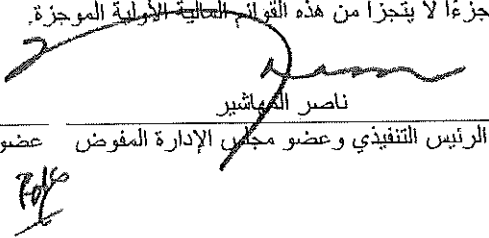 جزءًا لا يتجزأ من هذه القوائم المالية الأولية الموجزة.
ناصر المهاشير
الرئيس التنفيذي وعضو مجلس الإدارة المفوض عضو